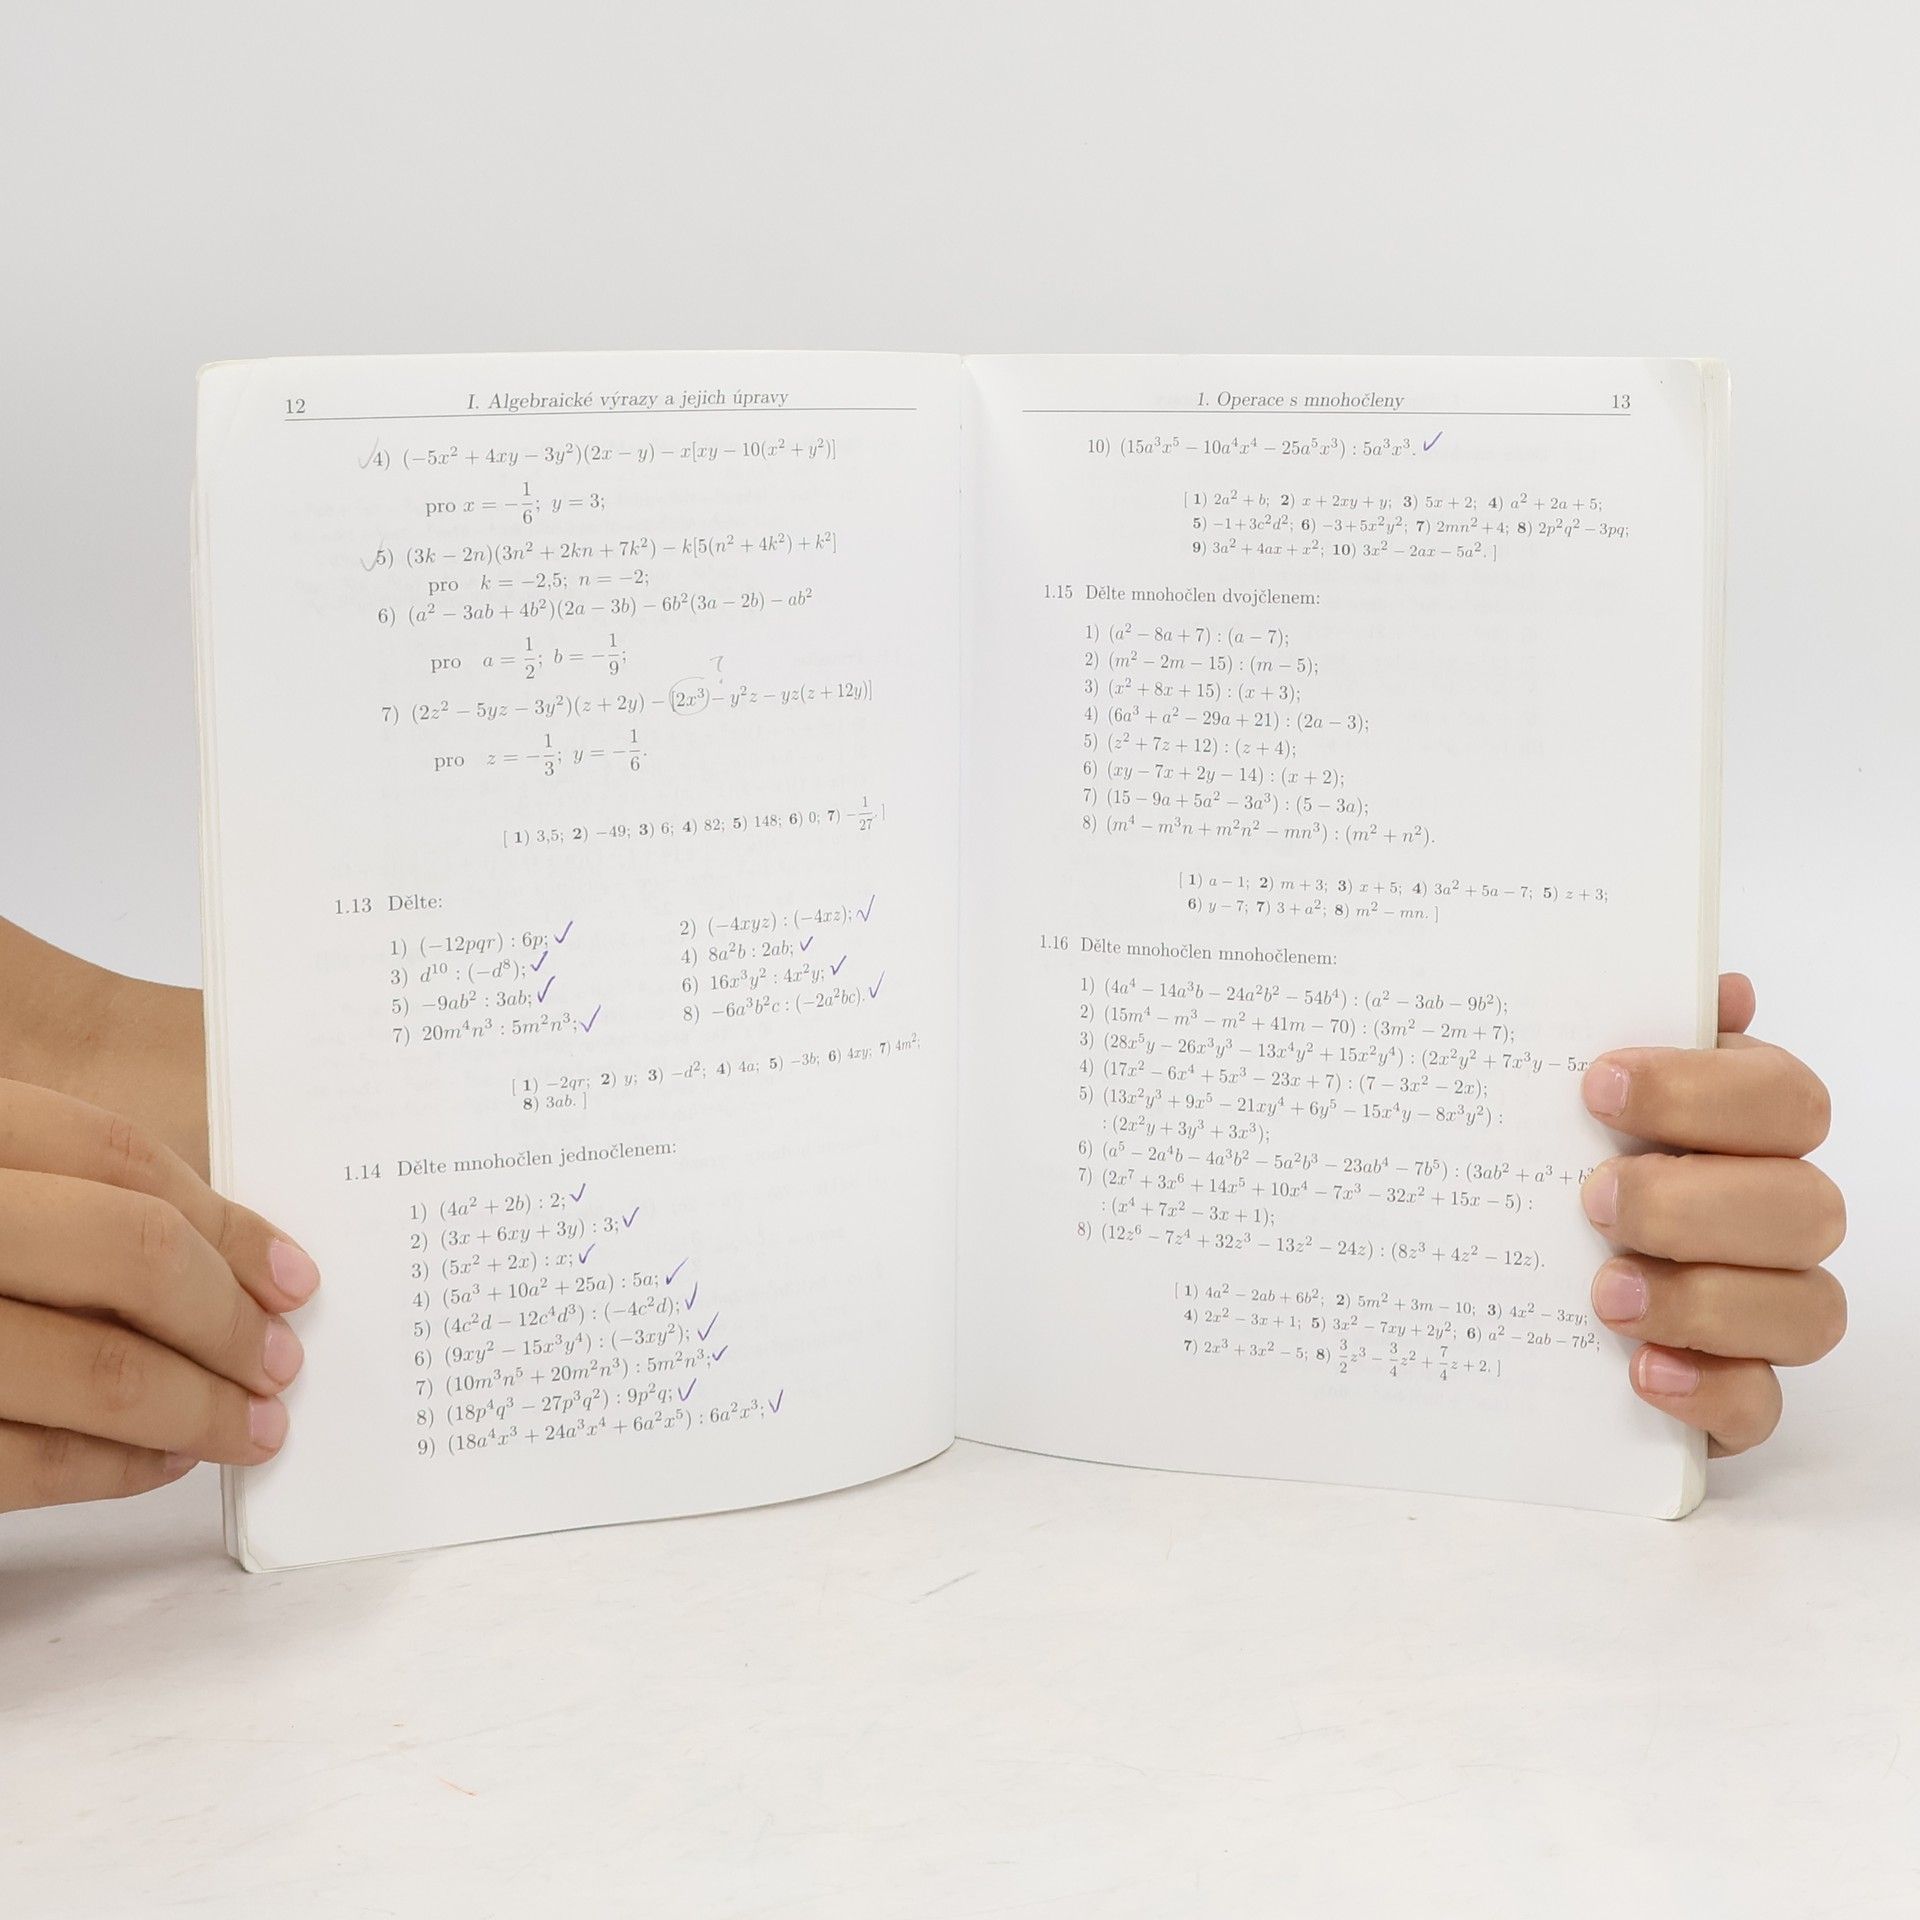 12 I. Algebraické výrazy a jejich úpravy
4) (−5x² + 4xy − 3y²)(2x − y) − x[xy − 10(x² + y²)]
pro x = −1/6; y = 3;
5) (3k − 2n)(3n² + 2kn + 7k²) − k[5(n² + 4k²) + k²]
pro k = −2,5; n = −2;
6) (a² − 3ab + 4b²)(2a − 3b) − 6b²(3a − 2b) − ab²
pro a = 1/2; b = −1/9;
?
7) (2z² − 5yz − 3y²)(z + 2y) − [2x³) − y²z − yz(z + 12y)]
pro z = −1/3; y = −1/6.
[ 1) 3,5; 2) −49; 3) 6; 4) 82; 5) 148; 6) 0; 7) −1/27. ]
1.13 Dělte:
1) (−12pqr) : 6p; 2) (−4xyz) : (−4xz);
3) d¹⁰ : (−d⁸); 4) 8a²b : 2ab;
5) −9ab² : 3ab; 6) 16x³y² : 4x²y;
7) 20m⁴n³ : 5m²n³; 8) −6a³b²c : (−2a²bc).
[ 1) −2qr; 2) y; 3) −d²; 4) 4a; 5) −3b; 6) 4xy; 7) 4m²;
8) 3ab. ]
1.14 Dělte mnohočlen jednočlenem:
1) (4a² + 2b) : 2;
2) (3x + 6xy + 3y) : 3;
3) (5x² + 2x) : x;
4) (5a³ + 10a² + 25a) : 5a;
5) (4c²d − 12c⁴d³) : (−4c²d);
6) (9xy² − 15x³y⁴) : (−3xy²);
7) (10m³n⁵ + 20m²n³) : 5m²n³;
8) (18p⁴q³ − 27p³q²) : 9p²q;
9) (18a⁴x³ + 24a³x⁴ + 6a²x⁵) : 6a²x³;
1. Operace s mnohočleny 13
10) (15a³x⁵ − 10a⁴x⁴ − 25a⁵x³) : 5a³x³.
[ 1) 2a² + b; 2) x + 2xy + y; 3) 5x + 2; 4) a² + 2a + 5;
5) −1 + 3c²d²; 6) −3 + 5x²y²; 7) 2mn² + 4; 8) 2p²q² − 3pq;
9) 3a² + 4ax + x²; 10) 3x² − 2ax − 5a². ]
1.15 Dělte mnohočlen dvojčlenem:
1) (a² − 8a + 7) : (a − 7);
2) (m² − 2m − 15) : (m − 5);
3) (x² + 8x + 15) : (x + 3);
4) (6a³ + a² − 29a + 21) : (2a − 3);
5) (z² + 7z + 12) : (z + 4);
6) (xy − 7x + 2y − 14) : (x + 2);
7) (15 − 9a + 5a² − 3a³) : (5 − 3a);
8) (m⁴ − m³n + m²n² − mn³) : (m² + n²).
[ 1) a − 1; 2) m + 3; 3) x + 5; 4) 3a² + 5a − 7; 5) z + 3;
6) y − 7; 7) 3 + a²; 8) m² − mn. ]
1.16 Dělte mnohočlen mnohočlenem:
1) (4a⁴ − 14a³b − 24a²b² − 54b⁴) : (a² − 3ab − 9b²);
2) (15m⁴ − m³ − m² + 41m − 70) : (3m² − 2m + 7);
3) (28x⁵y − 26x³y³ − 13x⁴y² + 15x²y⁴) : (2x²y² + 7x³y − 5x
4) (17x² − 6x⁴ + 5x³ − 23x + 7) : (7 − 3x² − 2x);
5) (13x²y³ + 9x⁵ − 21xy⁴ + 6y⁵ − 15x⁴y − 8x³y²) :
: (2x²y + 3y³ + 3x³);
6) (a⁵ − 2a⁴b − 4a³b² − 5a²b³ − 23ab⁴ − 7b⁵) : (3ab² + a³ + b³
7) (2x⁷ + 3x⁶ + 14x⁵ + 10x⁴ − 7x³ − 32x² + 15x − 5) :
: (x⁴ + 7x² − 3x + 1);
8) (12z⁶ − 7z⁴ + 32z³ − 13z² − 24z) : (8z³ + 4z² − 12z).
[ 1) 4a² − 2ab + 6b²; 2) 5m² + 3m − 10; 3) 4x² − 3xy;
4) 2x² − 3x + 1; 5) 3x² − 7xy + 2y²; 6) a² − 2ab − 7b²;
7) 2x³ + 3x² − 5; 8) 3/2z³ − 3/4z² + 7/4z + 2. ]